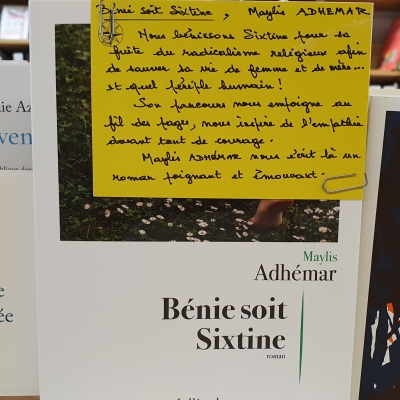 Bénie soit Sixtine, Maylis ADHEMAR
Nous bénissons Sixtine pour sa
fuite du radicalisme religieux afin
de sauver sa vie de femme et de mère...
et quel périple humain !
Son parcours nous empoigne au
fil des pages, nous inspire de l'empathie
devant tant de courage.
Maylis ADHÉMAR nous écrit là un
roman poignant et émouvant.
Maylis
Adhémar
Bénie soit
Sixtine
roman
ie Az
ven
e
ée